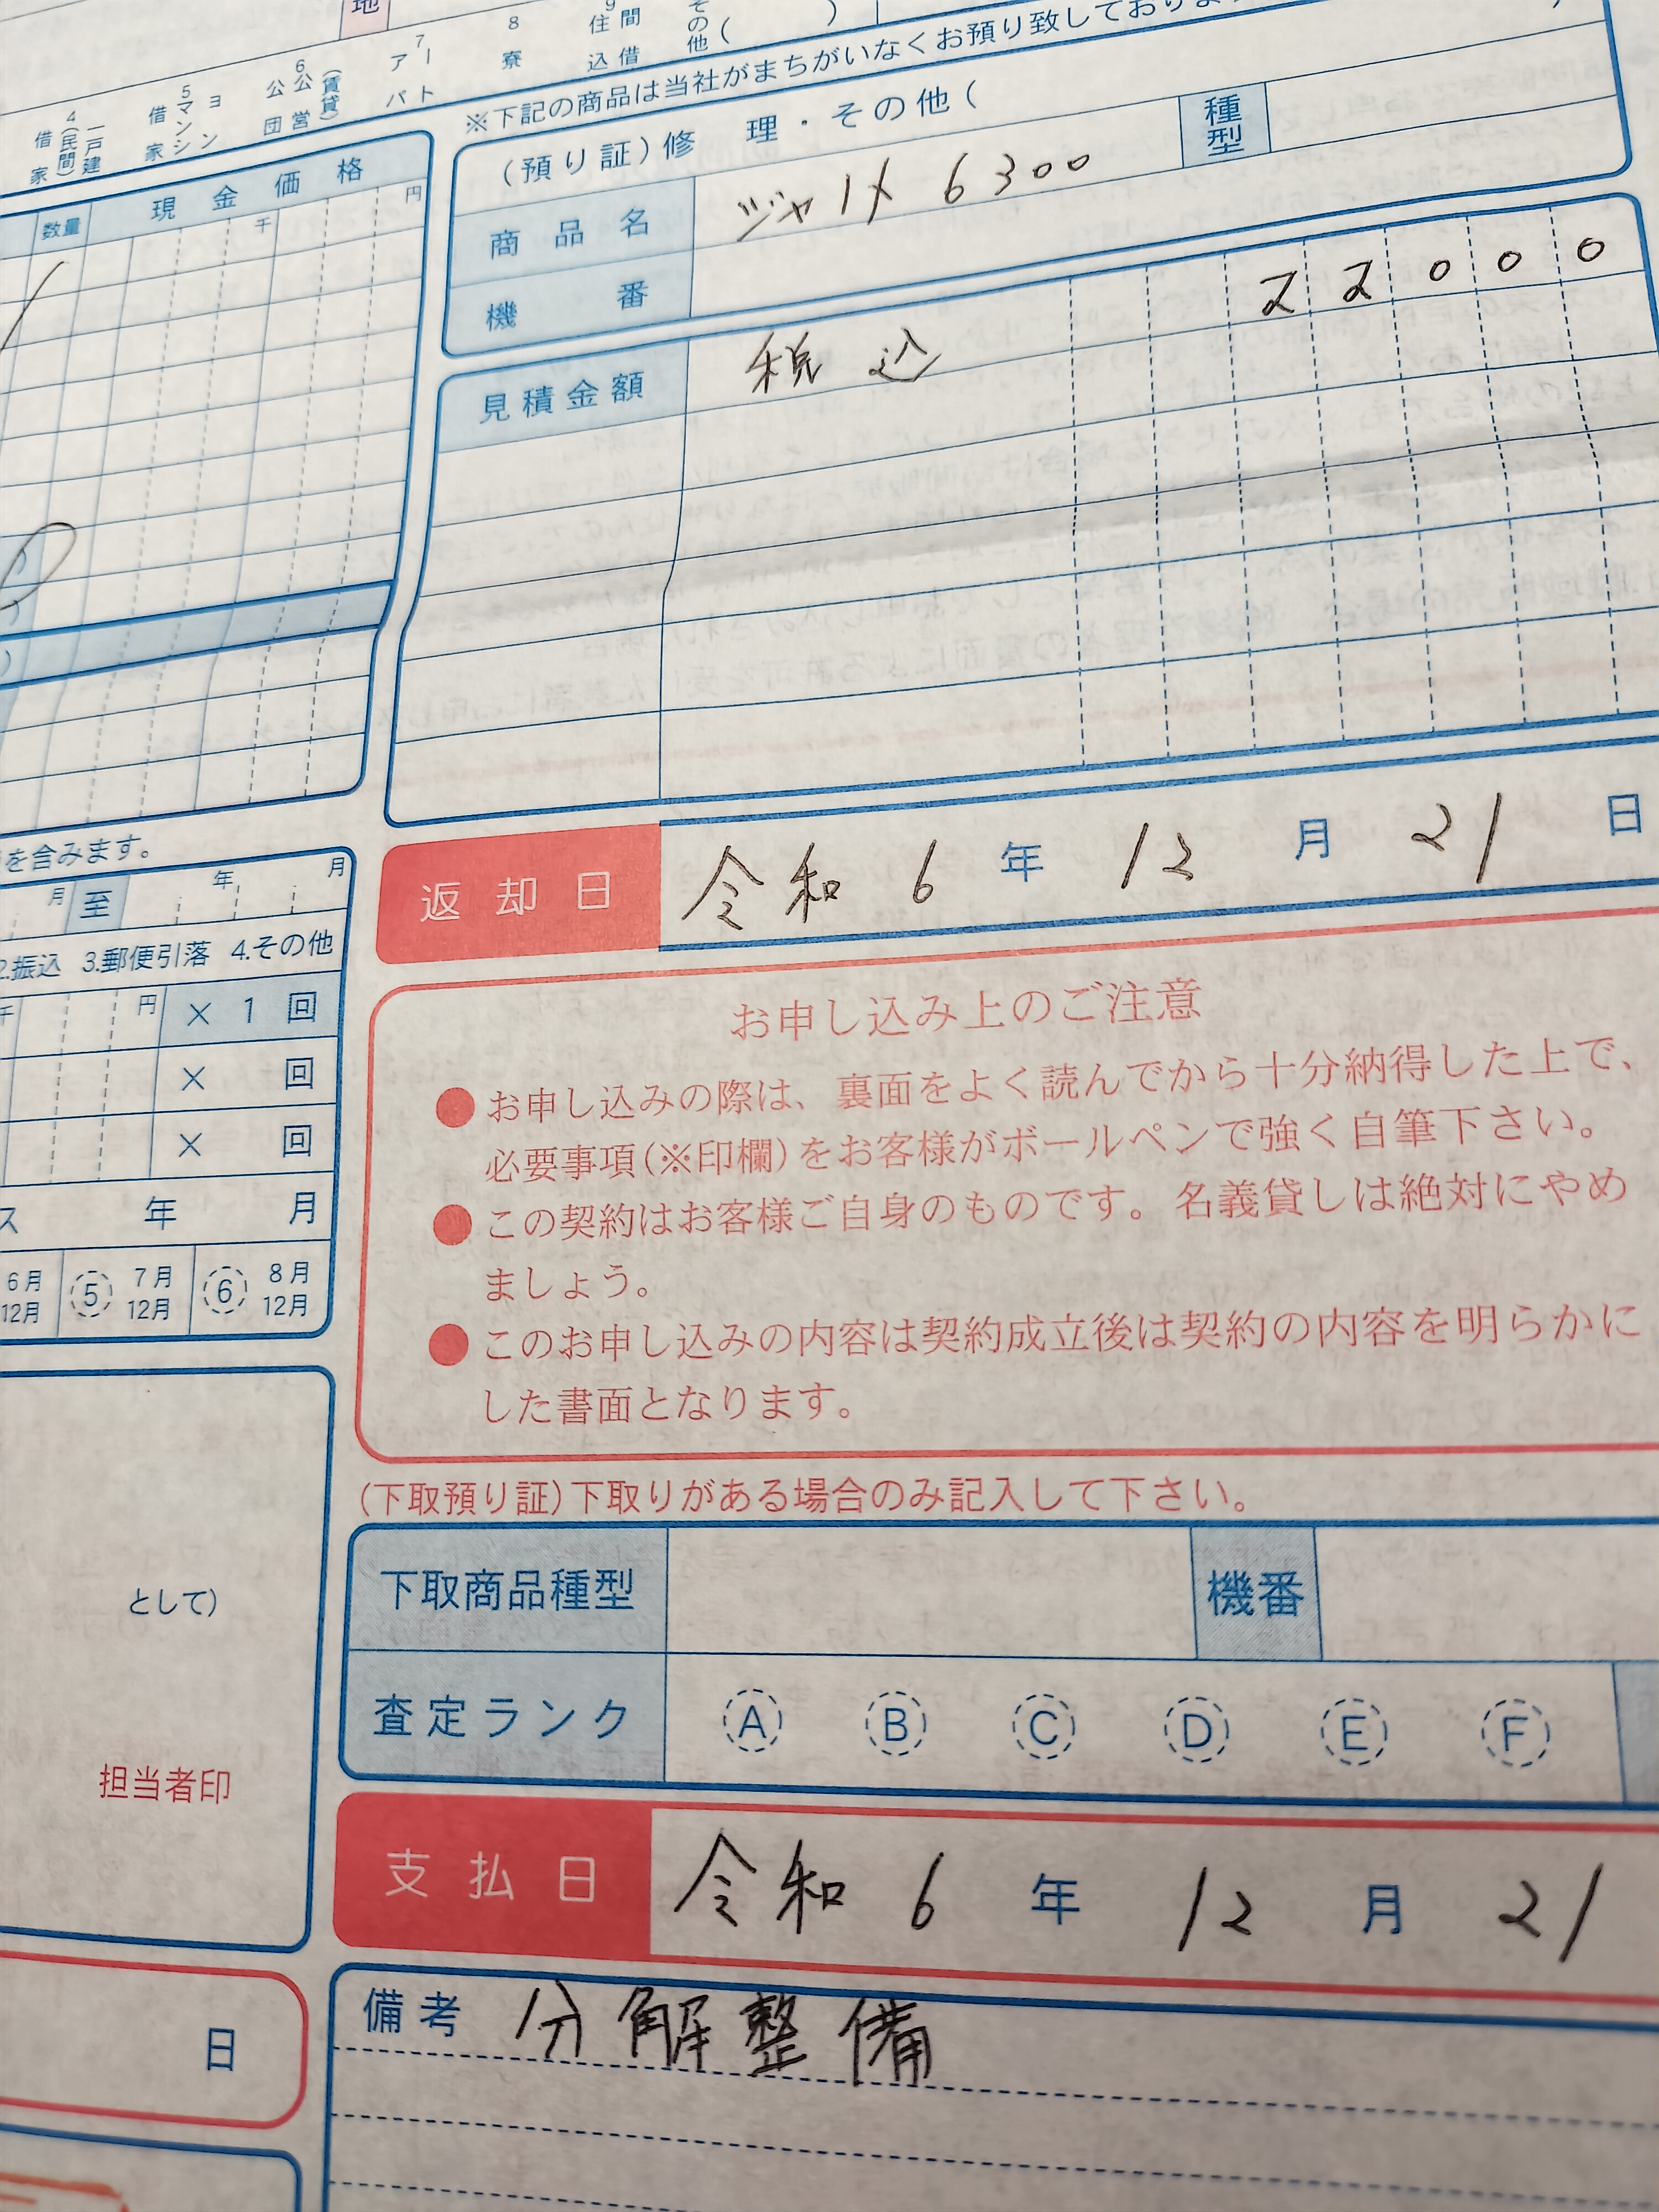 地
4 一戸建(民間)借家
5 マンション借家
6 公営(賃貸)公団
7 アパート
8 寮
9 間借住込
その他( )
※下記の商品は当社がまちがいなくお預り致しており
(預り証)修 理・その他(
商品名 ジャノメ 6300 種型
機番
見積金額 税込 22000
数量 現金価格
千 円
返却日 令和 6 年 12 月 21 日
を含みます。
月 至 年 月
2.振込 3.郵便引落 4.その他
千 円 × 1 回
× 回
× 回
ス 年 月
6月 12月 5 7月 12月 6 8月 12月
お申し込み上のご注意
●お申し込みの際は、裏面をよく読んでから十分納得した上で、
必要事項(※印欄)をお客様がボールペンで強く自筆下さい。
●この契約はお客様ご自身のものです。名義貸しは絶対にやめ
ましょう。
●このお申し込みの内容は契約成立後は契約の内容を明らかに
した書面となります。
(下取預り証)下取りがある場合のみ記入して下さい。
下取商品種型 機番
査定ランク A B C D E F
として)
担当者印
支払日 令和 6 年 12 月 21
日
備考 分解整備